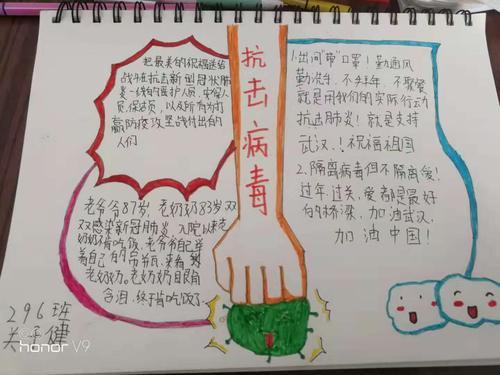 把最美的祝福送给
战斗在抗击新型冠状肺
炎一线的医护人员,安保人
员,保洁员,以及所有为打
赢防疫攻坚战付出的
人们
抗击病毒
1.出门“带”口罩!勤通风
勤洗手,不拜年,不聚餐
就是用我们的实际行动
抗击肺炎!就是支持
武汉.!祝福祖国
2.隔离病毒但不隔离爱!
过年过关,爱都是最好
的桥梁,加油武汉,
加油中国!
老爷爷87岁,老奶奶83岁双
双感染新冠肺炎,入院以来老
奶奶不肯吃饭,老爷爷自己举
着自己的吊瓶,来看到
老奶奶。老奶奶眼眶
含泪,终于肯吃饭了
296班
关子健
honor V9